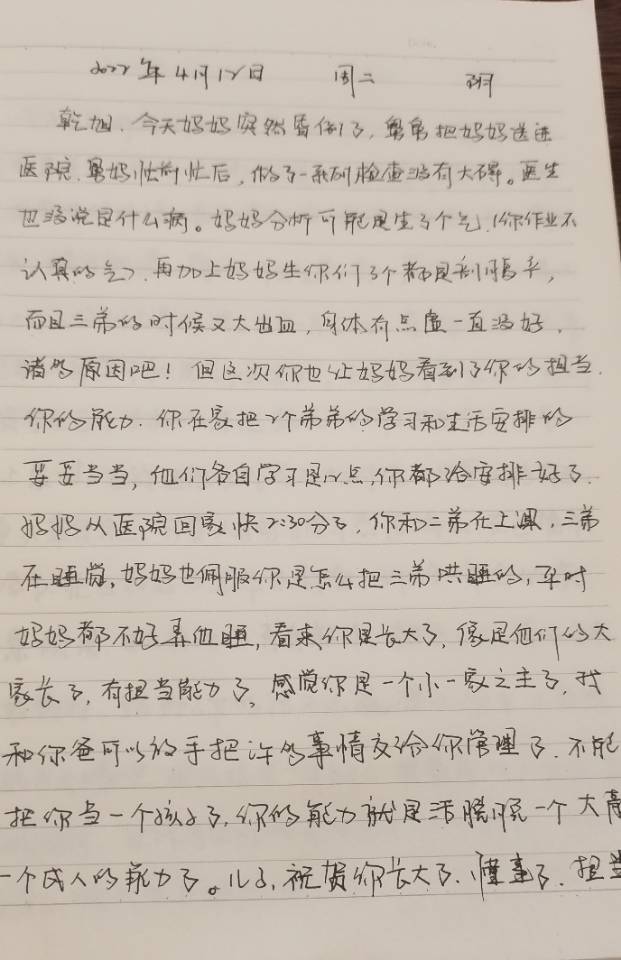 2022年4月12日 周二 阴
乾旭、今天妈妈突然昏倒了，舅舅把妈妈送进
医院、舅妈忙前忙后，做了一系列检查没有大碍。医生
也没说是什么病。妈妈分析可能是生了个气、(你作业不
认真的气)、再加上妈妈生你们3个都是剖腹产，
而且三弟的时候又大出血，身体有点虚一直没好，
诸多原因吧！但这次你也让妈妈看到了你的担当、
你的能力、你在家把2个弟弟的学习和生活安排的
妥妥当当，他们各自学习是几点，你都给安排好了、
妈妈从医院回家快2:30分了，你和二弟在上课，三弟
在睡觉，妈妈也佩服你是怎么把三弟哄睡的，平时
妈妈都不好弄他睡，看来你是长大了，像是他们的大
家长了，有担当能力了，感觉你是一个小一家之主了，我
和你爸可以放手把许多事情交给你管理了、不能
把你当一个孩子了，你的能力就是活脱脱一个大高
一个成人的能力了。儿子，祝贺你长大了、懂事了、担当